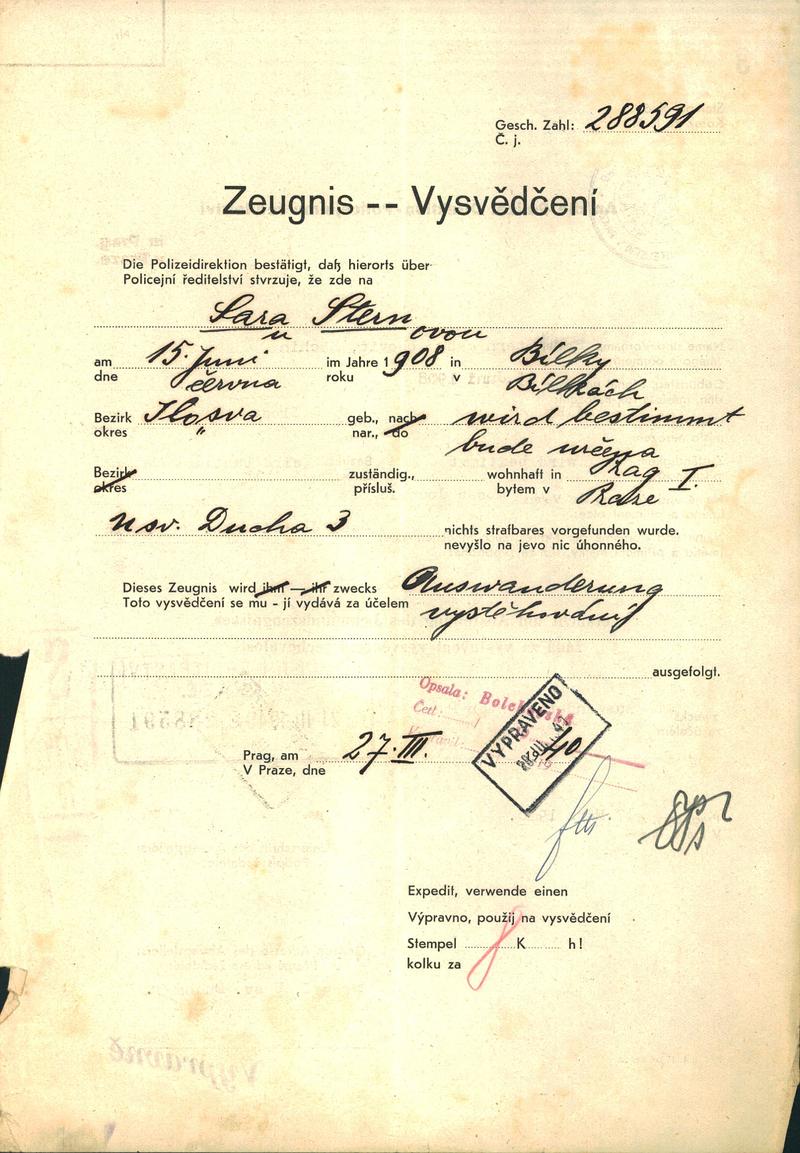 Gesch. Zahl: 288591
Č. j.
Zeugnis -- Vysvědčení
Die Polizeidirektion bestätigt, daß hierorts über
Policejní ředitelství stvrzuje, že zde na
Sara Stern
u ovou
am 15. Juni im Jahre 1908 in Bilky
dne června roku v Bílkách
Bezirk Ilosva geb., nach wird bestimmt
okres " nar., do bude určena
Bezirk zuständig., wohnhaft in Prag I.
okres přísluš. bytem v Praze
U sv. Ducha 3 nichts strafbares vorgefunden wurde.
nevyšlo na jevo nic úhonného.
Dieses Zeugnis wird ihm — ihr zwecks Auswanderung
Toto vysvědčení se mu - jí vydává za účelem vystěhování
ausgefolgt.
Opsala:
Četl:
VYPRAVENO
Prag, am 27. III. 40
V Praze, dne
Expedit, verwende einen
Výpravno, použij na vysvědčení
Stempel 8 K h!
kolku za
Výpravně